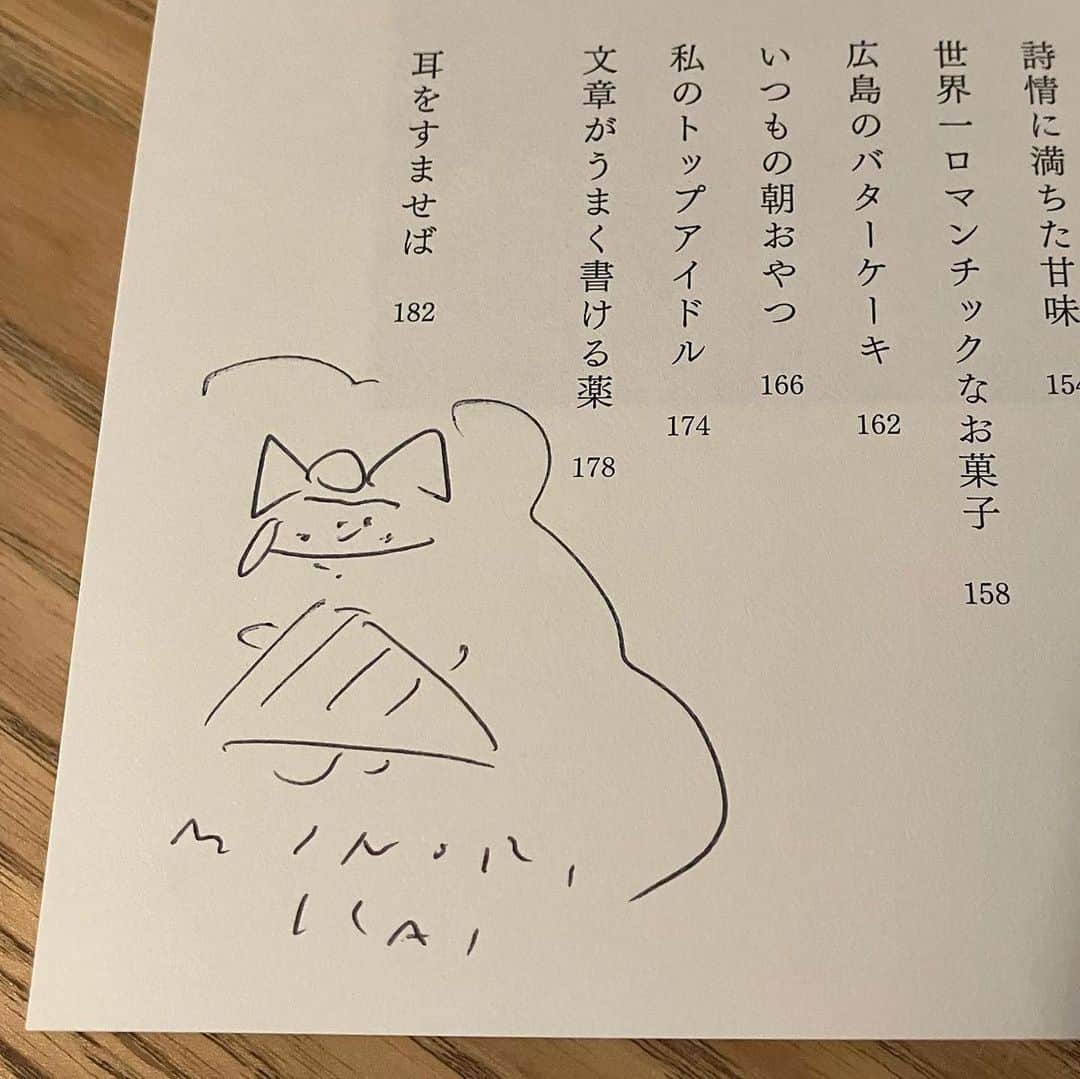 詩情に満ちた甘味 154
世界一ロマンチックなお菓子 158
広島のバターケーキ 162
いつもの朝おやつ 166
私のトップアイドル 174
文章がうまく書ける薬 178
耳をすませば 182
MINORI